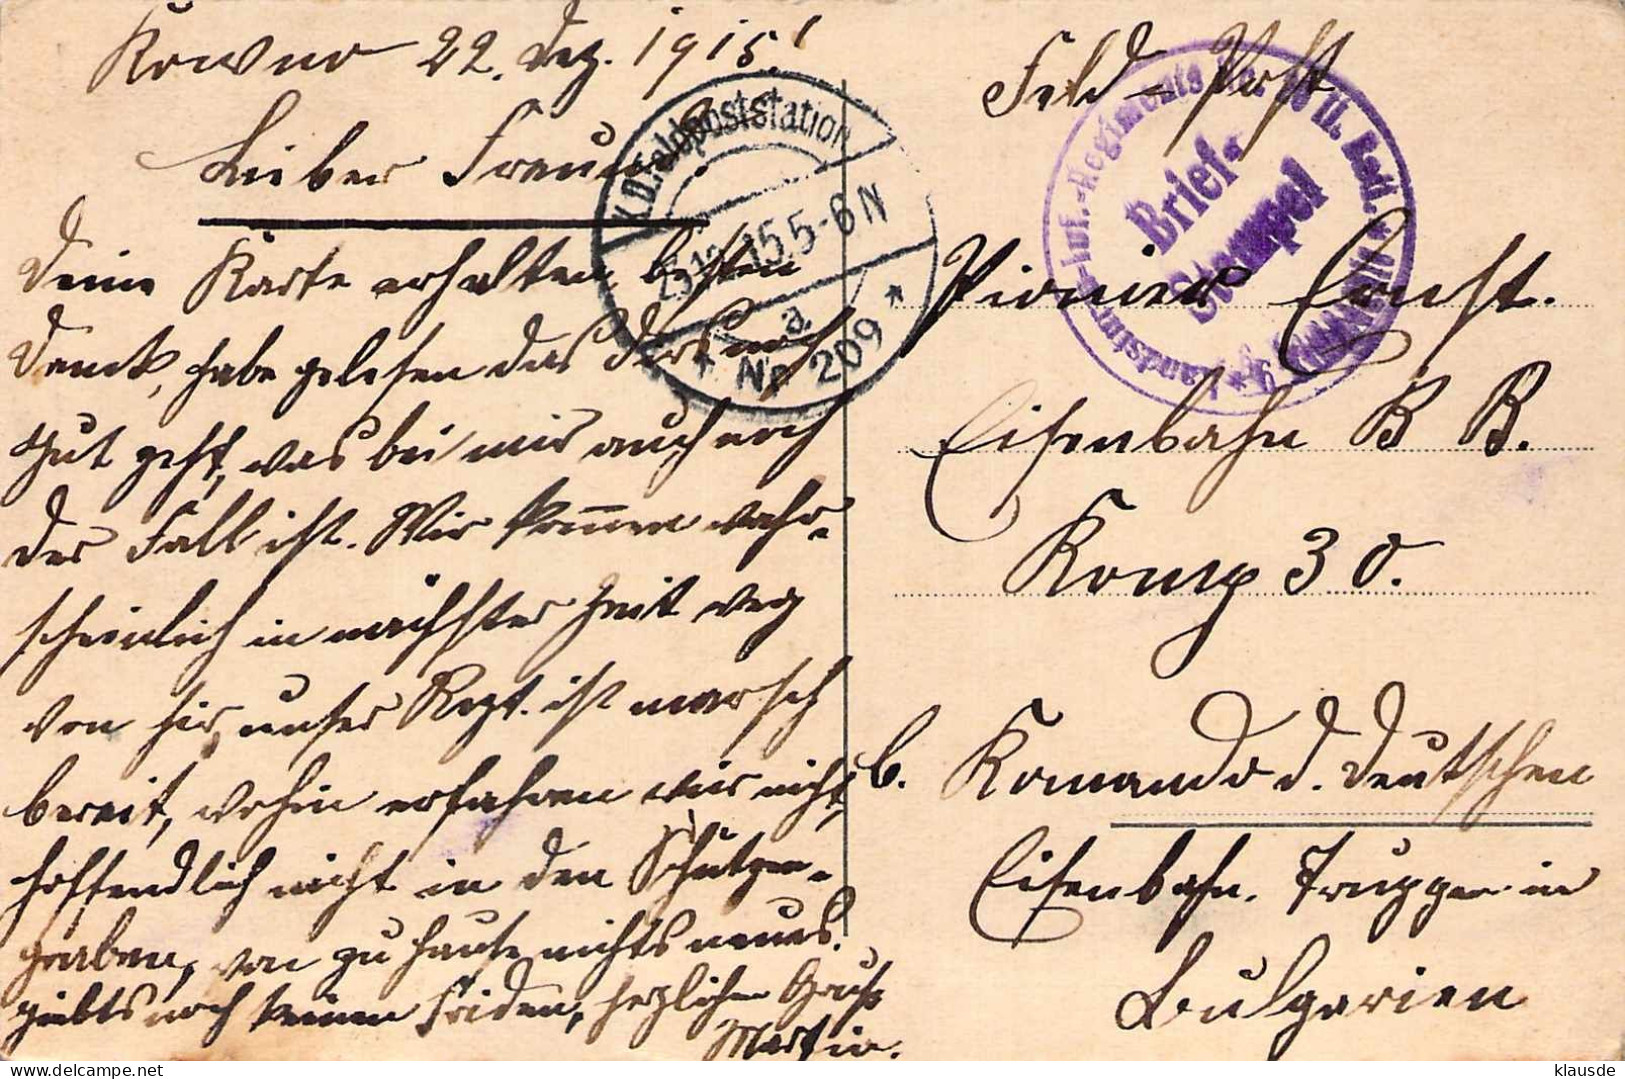 Kowno 22. Dez. 1915!
Lieber Freund!
Deine Karte erhalten, besten
Dank, habe gelesen das Dirs noch
Gut geht, was bei mir auch noch
der Fall ist. Wir kommen wahr-
scheinlich in nächster Zeit weg
von hir, unser Regt. ist marsch
bereit, wohin erfahren wir nicht,
hoffendlich nicht in den Schützen-
graben, von zu hause nichts neues.
giebts noch keinen Friden, herzlichen Gruß
Martin.
K.D. Feldpoststation
23.12.15.5-6N
a
* Nr 209 *
Feld-Post
Landstm.-Inf.-Regiments II. Batl. *
Brief-
Stempel
Pionier Ernst.
Eisenbahn B B.
Komp 30.
b. Komando d. deutschen
Eisenbahn. Truppen in
Bulgarien
klausde